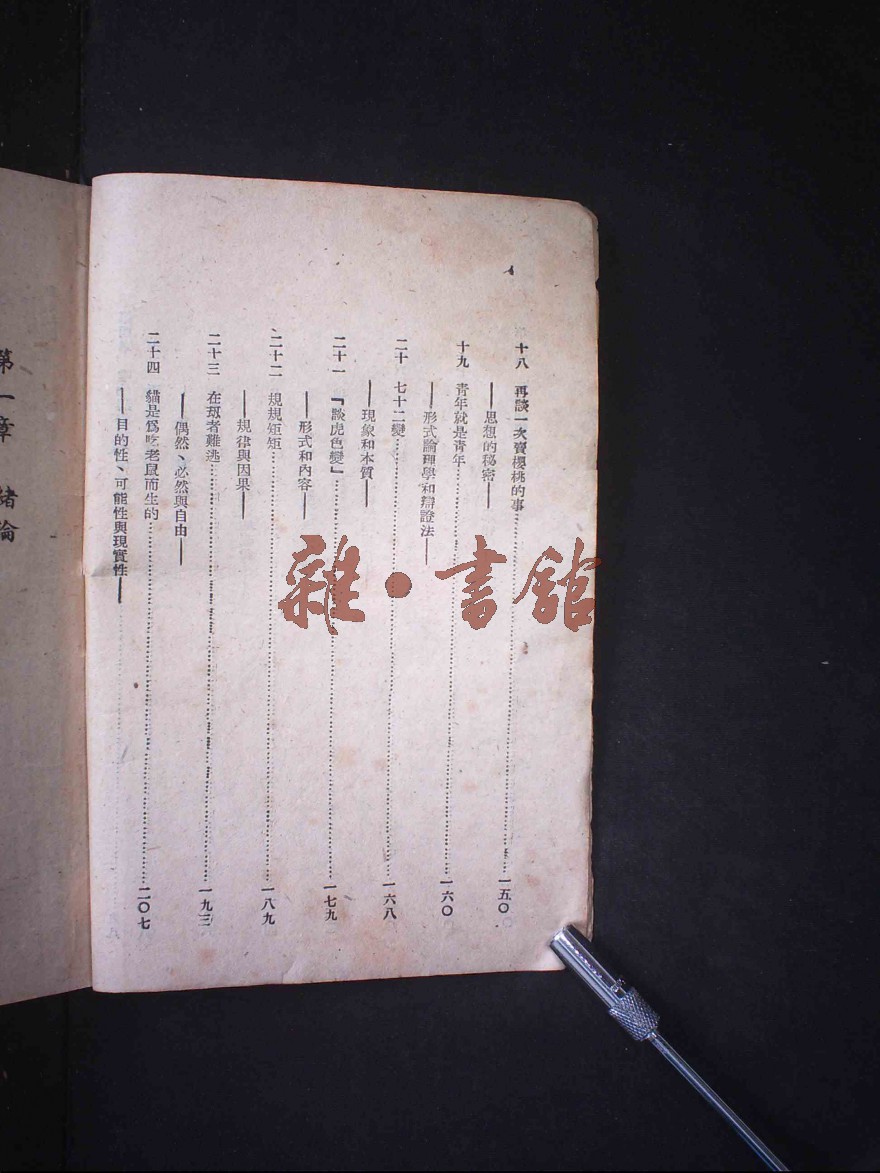 十八 再談一次賣櫻桃的事……一五〇
——思想的秘密——
十九 青年就是青年……一六〇
——形式論理學和辯證法——
二十 七十二變……一六八
——現象和本質——
二十一 「談虎色變」……一七九
——形式和內容——
二十二 規規矩矩……一八九
——規律與因果——
二十三 在刼者難逃……一九三
——偶然、必然與自由——
二十四 貓是爲吃老鼠而生的……二〇七
——目的性、可能性與現實性——
第一章 緒論
雜·書館